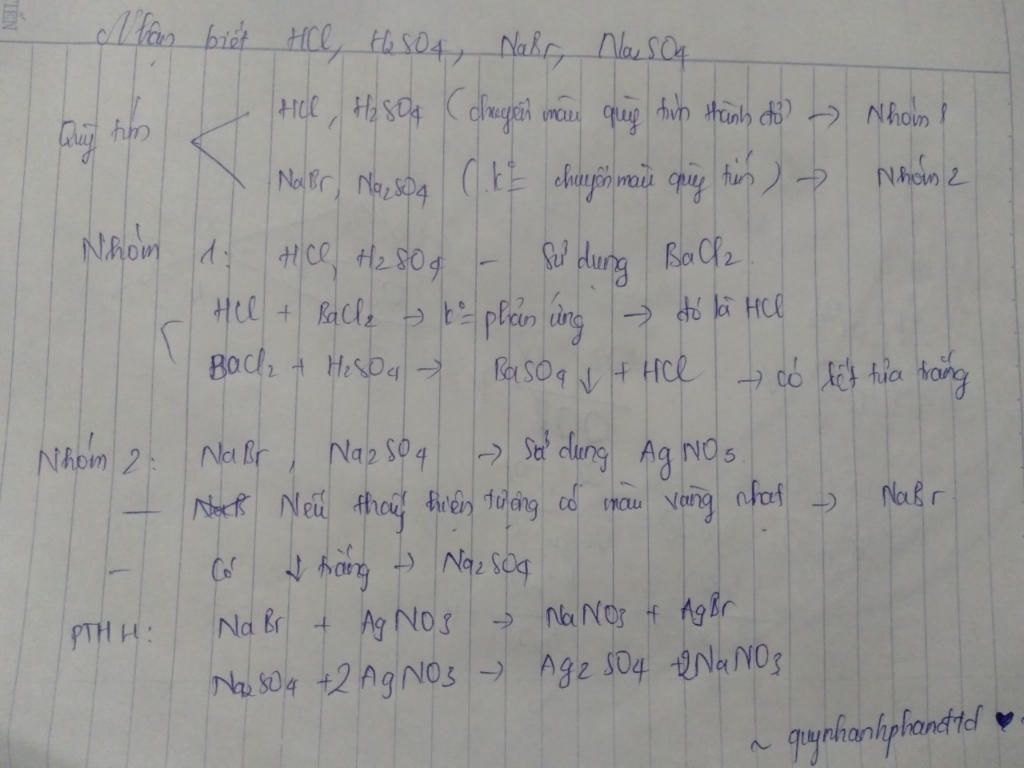 Nhận biết HCl, H2SO4, NaBr, Na2SO4
Quỳ tím
HCl, H2SO4 (chuyển màu quỳ tím thành đỏ) → Nhóm 1
NaBr, Na2SO4 (k°= chuyển màu quỳ tím) → Nhóm 2
Nhóm 1: HCl, H2SO4 - Sử dụng BaCl2.
HCl + BaCl2 → k°= phản ứng → đó là HCl
BaCl2 + H2SO4 → BaSO4 ↓ + HCl → có kết tủa trắng
Nhóm 2: NaBr, Na2SO4 → Sử dụng AgNO3.
- Nếu thấy hiện tượng có màu vàng nhạt → NaBr
- Có ↓ trắng → Na2SO4
PTHH: NaBr + AgNO3 → NaNO3 + AgBr
Na2SO4 + 2AgNO3 → Ag2SO4 + 2NaNO3
~ quynhanhphandtd ♥ ~